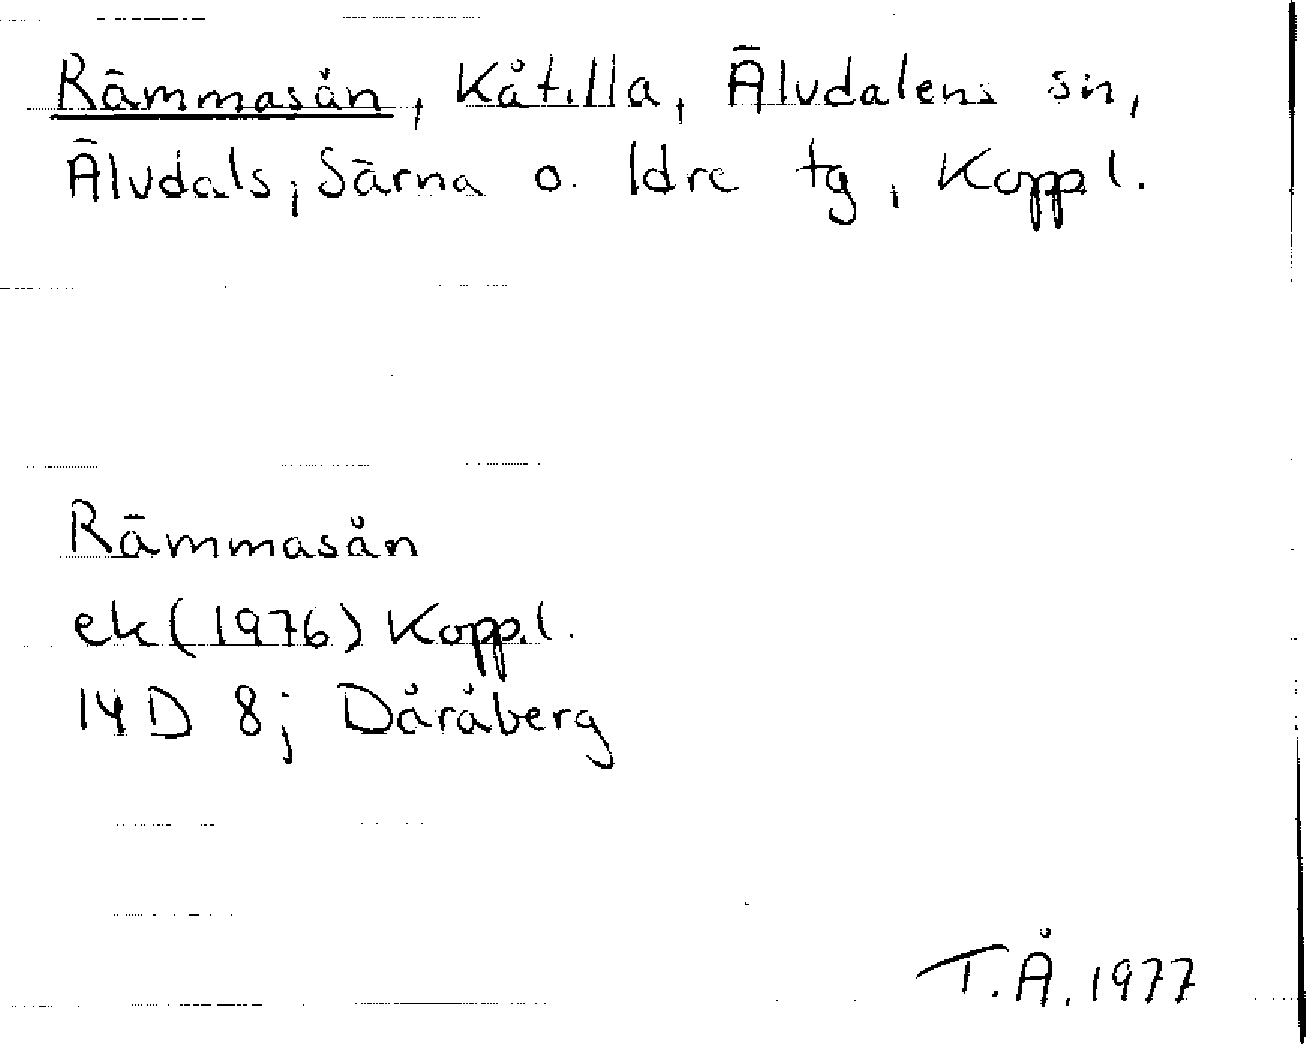 Rämmasån, Kåtilla, Älvdalens sn,
Älvdals, Särna o. Idre tg, Kopp.l.
Rämmasån
ek (1976) Kopp.l.
14 D 8j Dåråberg
T.Å. 1977